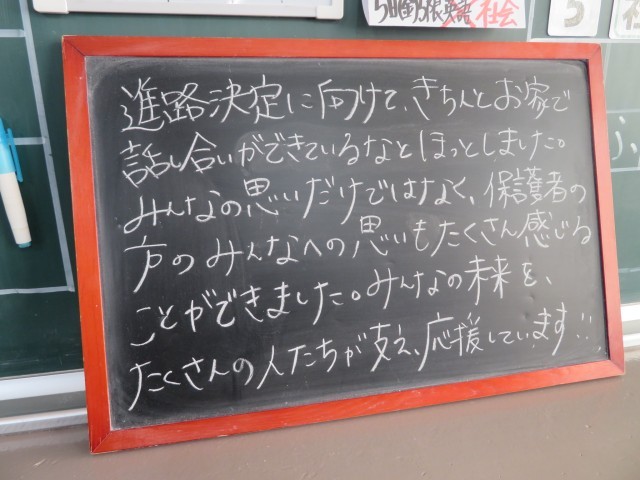 5日(金)5限英語
社会
5
進路決定に向けて、きちんとお家で
話し合いができているなとほっとしました。
みんなの思いだけではなく、保護者の
方のみんなへの思いもたくさん感じる
ことができました。みんなの未来を、
たくさんの人たちが支え、応援しています!!